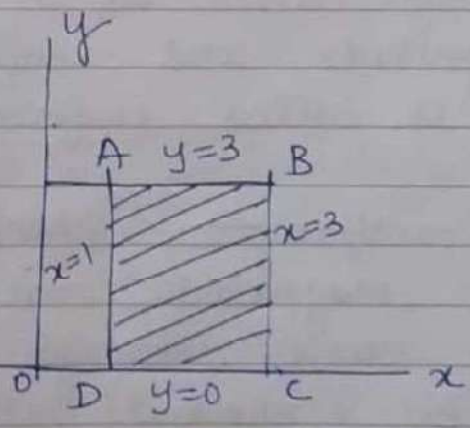 y
A y=3 B
x=3
x=1
O D y=0 C x